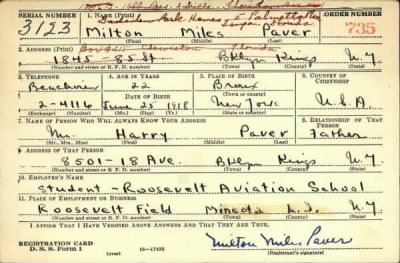 SERIAL NUMBER 1. NAME (Print) ORDER NUMBER
3123 Milton Miles Paver 735
(First) (Middle) (Last)
2. ADDRESS (Print)
1845-85 St Bklyn Kings N.Y.
(Number and street or R. F. D. number) (Town) (County) (State)
3. TELEPHONE 4. AGE IN YEARS 5. PLACE OF BIRTH 6. COUNTRY OF CITIZENSHIP
Beachview 22 Bronx
DATE OF BIRTH (Town or county)
2-4116 June 25 1918 New York U.S.A.
(Exchange) (Number) (Mo.) (Day) (Yr.) (State or country)
7. NAME OF PERSON WHO WILL ALWAYS KNOW YOUR ADDRESS 8. RELATIONSHIP OF THAT PERSON
Mr. Harry Paver Father
(Mr., Mrs., Miss) (First) (Middle) (Last)
9. ADDRESS OF THAT PERSON
8501-18 Ave. Bklyn Kings N.Y.
(Number and street or R. F. D. number) (Town) (County) (State)
10. EMPLOYER'S NAME
Student - Roosevelt Aviation School
11. PLACE OF EMPLOYMENT OR BUSINESS
Roosevelt Field Mineola L.I. N.Y.
(Number and street or R. F. D. number) (Town) (County) (State)
I AFFIRM THAT I HAVE VERIFIED ABOVE ANSWERS AND THAT THEY ARE TRUE.
REGISTRATION CARD
D. S. S. Form 1 (over) 16-17105 Milton Miles Paver
(Registrant's signature)